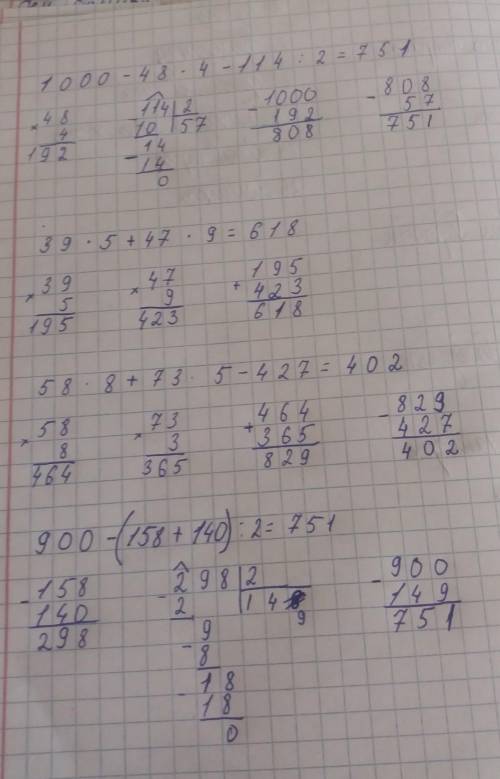 1000 - 48 · 4 - 114 : 2 = 751
× 48
4
192
- 114 | 2
10 | 57
- 14
14
0
- 1000
192
808
- 808
57
751
39 · 5 + 47 · 9 = 618
× 39
5
195
× 47
9
423
+ 195
423
618
58 · 8 + 73 · 5 - 427 = 402
× 58
8
464
× 73
3
365
+ 464
365
829
- 829
427
402
900 - (158 + 140) : 2 = 751
- 158
140
298
- 298 | 2
2 | 149
- 9
8
- 18
18
0
- 900
149
751